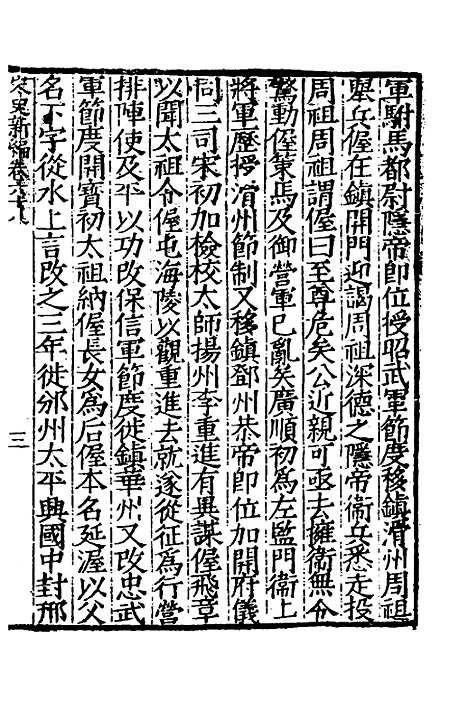 軍駙馬都尉隱帝即位授昭武軍節度移鎮滑州周祖
舉兵偓在鎮開門迎謁周祖深德之隱帝衞兵悉走投
周祖周祖謂偓曰至尊危矣公近親可亟去擁衞無令
驚動偓策馬及御營軍已亂矣廣順初爲左監門衞上
將軍歷授滑州節制又移鎮鄧州恭帝即位加開府儀
同三司宋初加檢校太師揚州李重進有異謀偓飛章
以聞太祖令偓屯海陵以觀重進去就遂從征爲行營
排陣使及平以功改保信軍節度徙鎮華州又改忠武
軍節度開寶初太祖納偓長女為后偓本名延渥以父
名下字從水上言改之三年徙邠州太平興國中封邢
宋史新編卷六十八
三